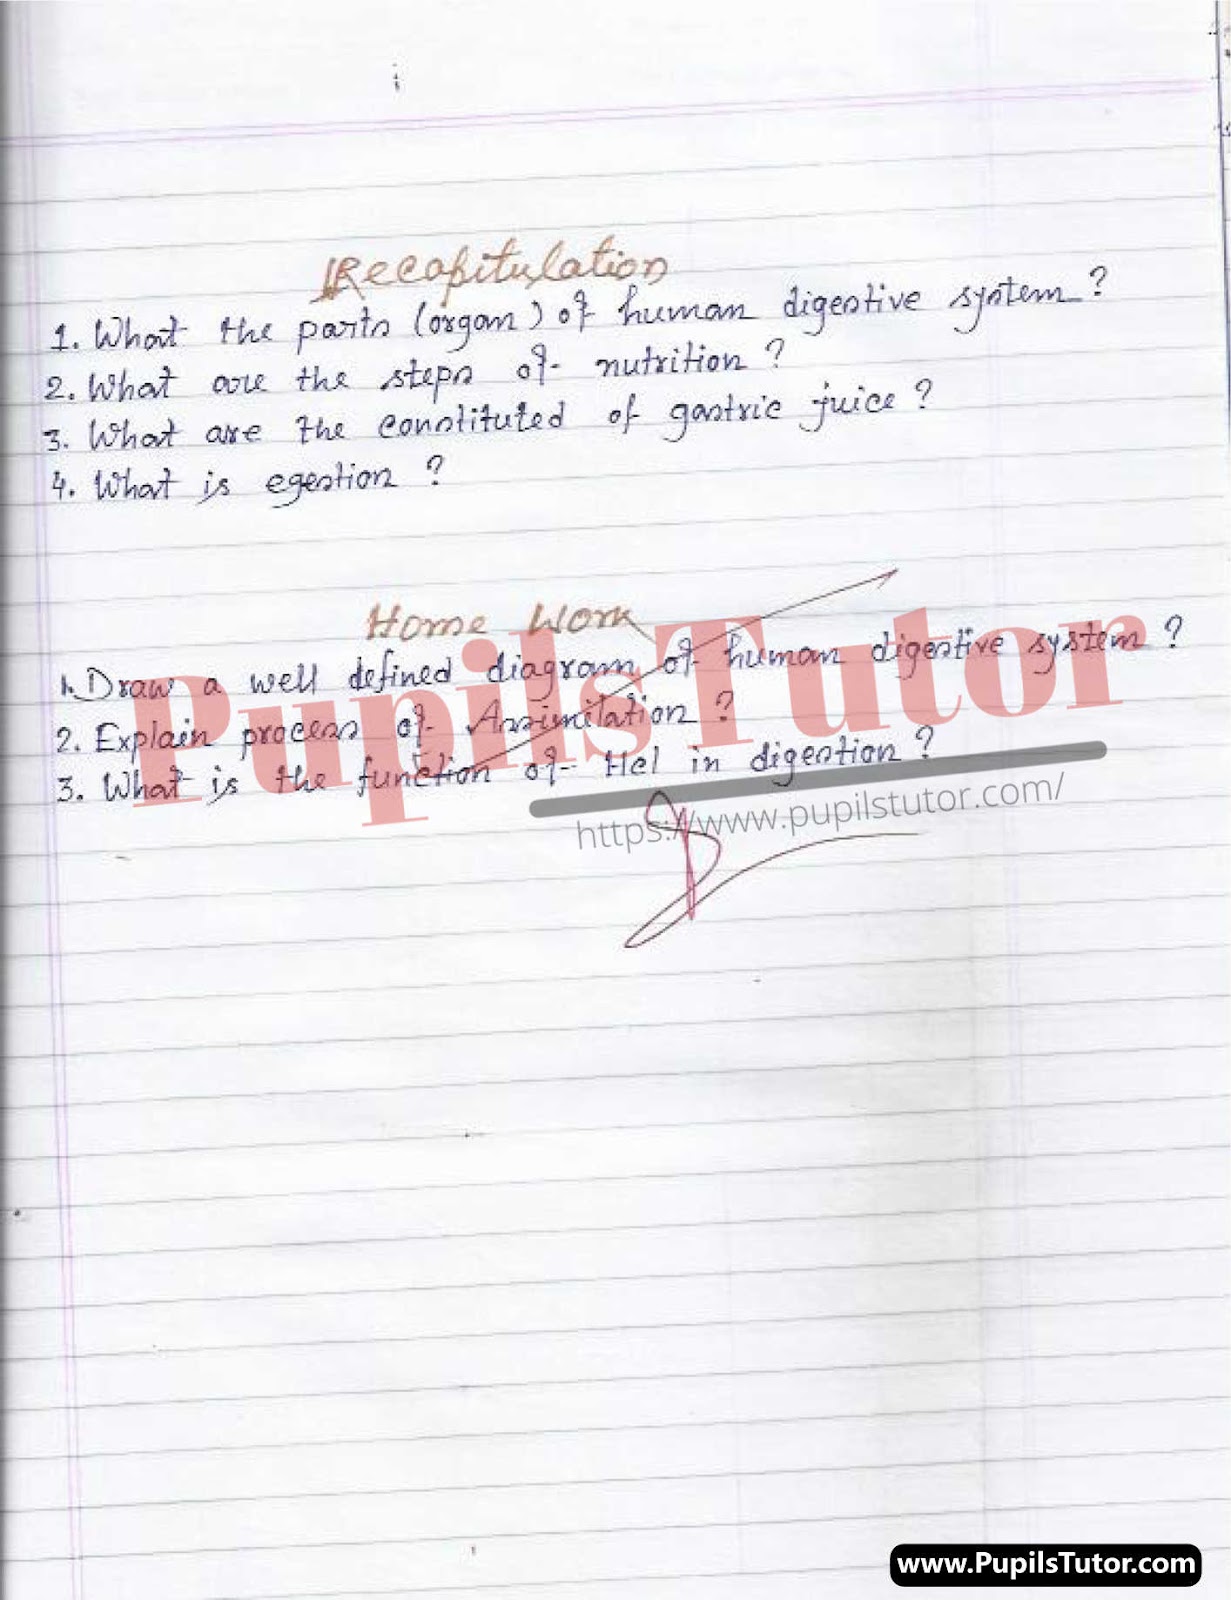 Recapitulation
1. What the parts (organ) of human digestive system ?
2. What are the steps of nutrition ?
3. What are the constituted of gastric juice ?
4. What is egestion ?
Home Work
1. Draw a well defined diagram of human digestive system ?
2. Explain process of Assimilation ?
3. What is the function of Hcl in digestion ?
PupilsTutor
https://www.pupilstutor.com/
www.PupilsTutor.com